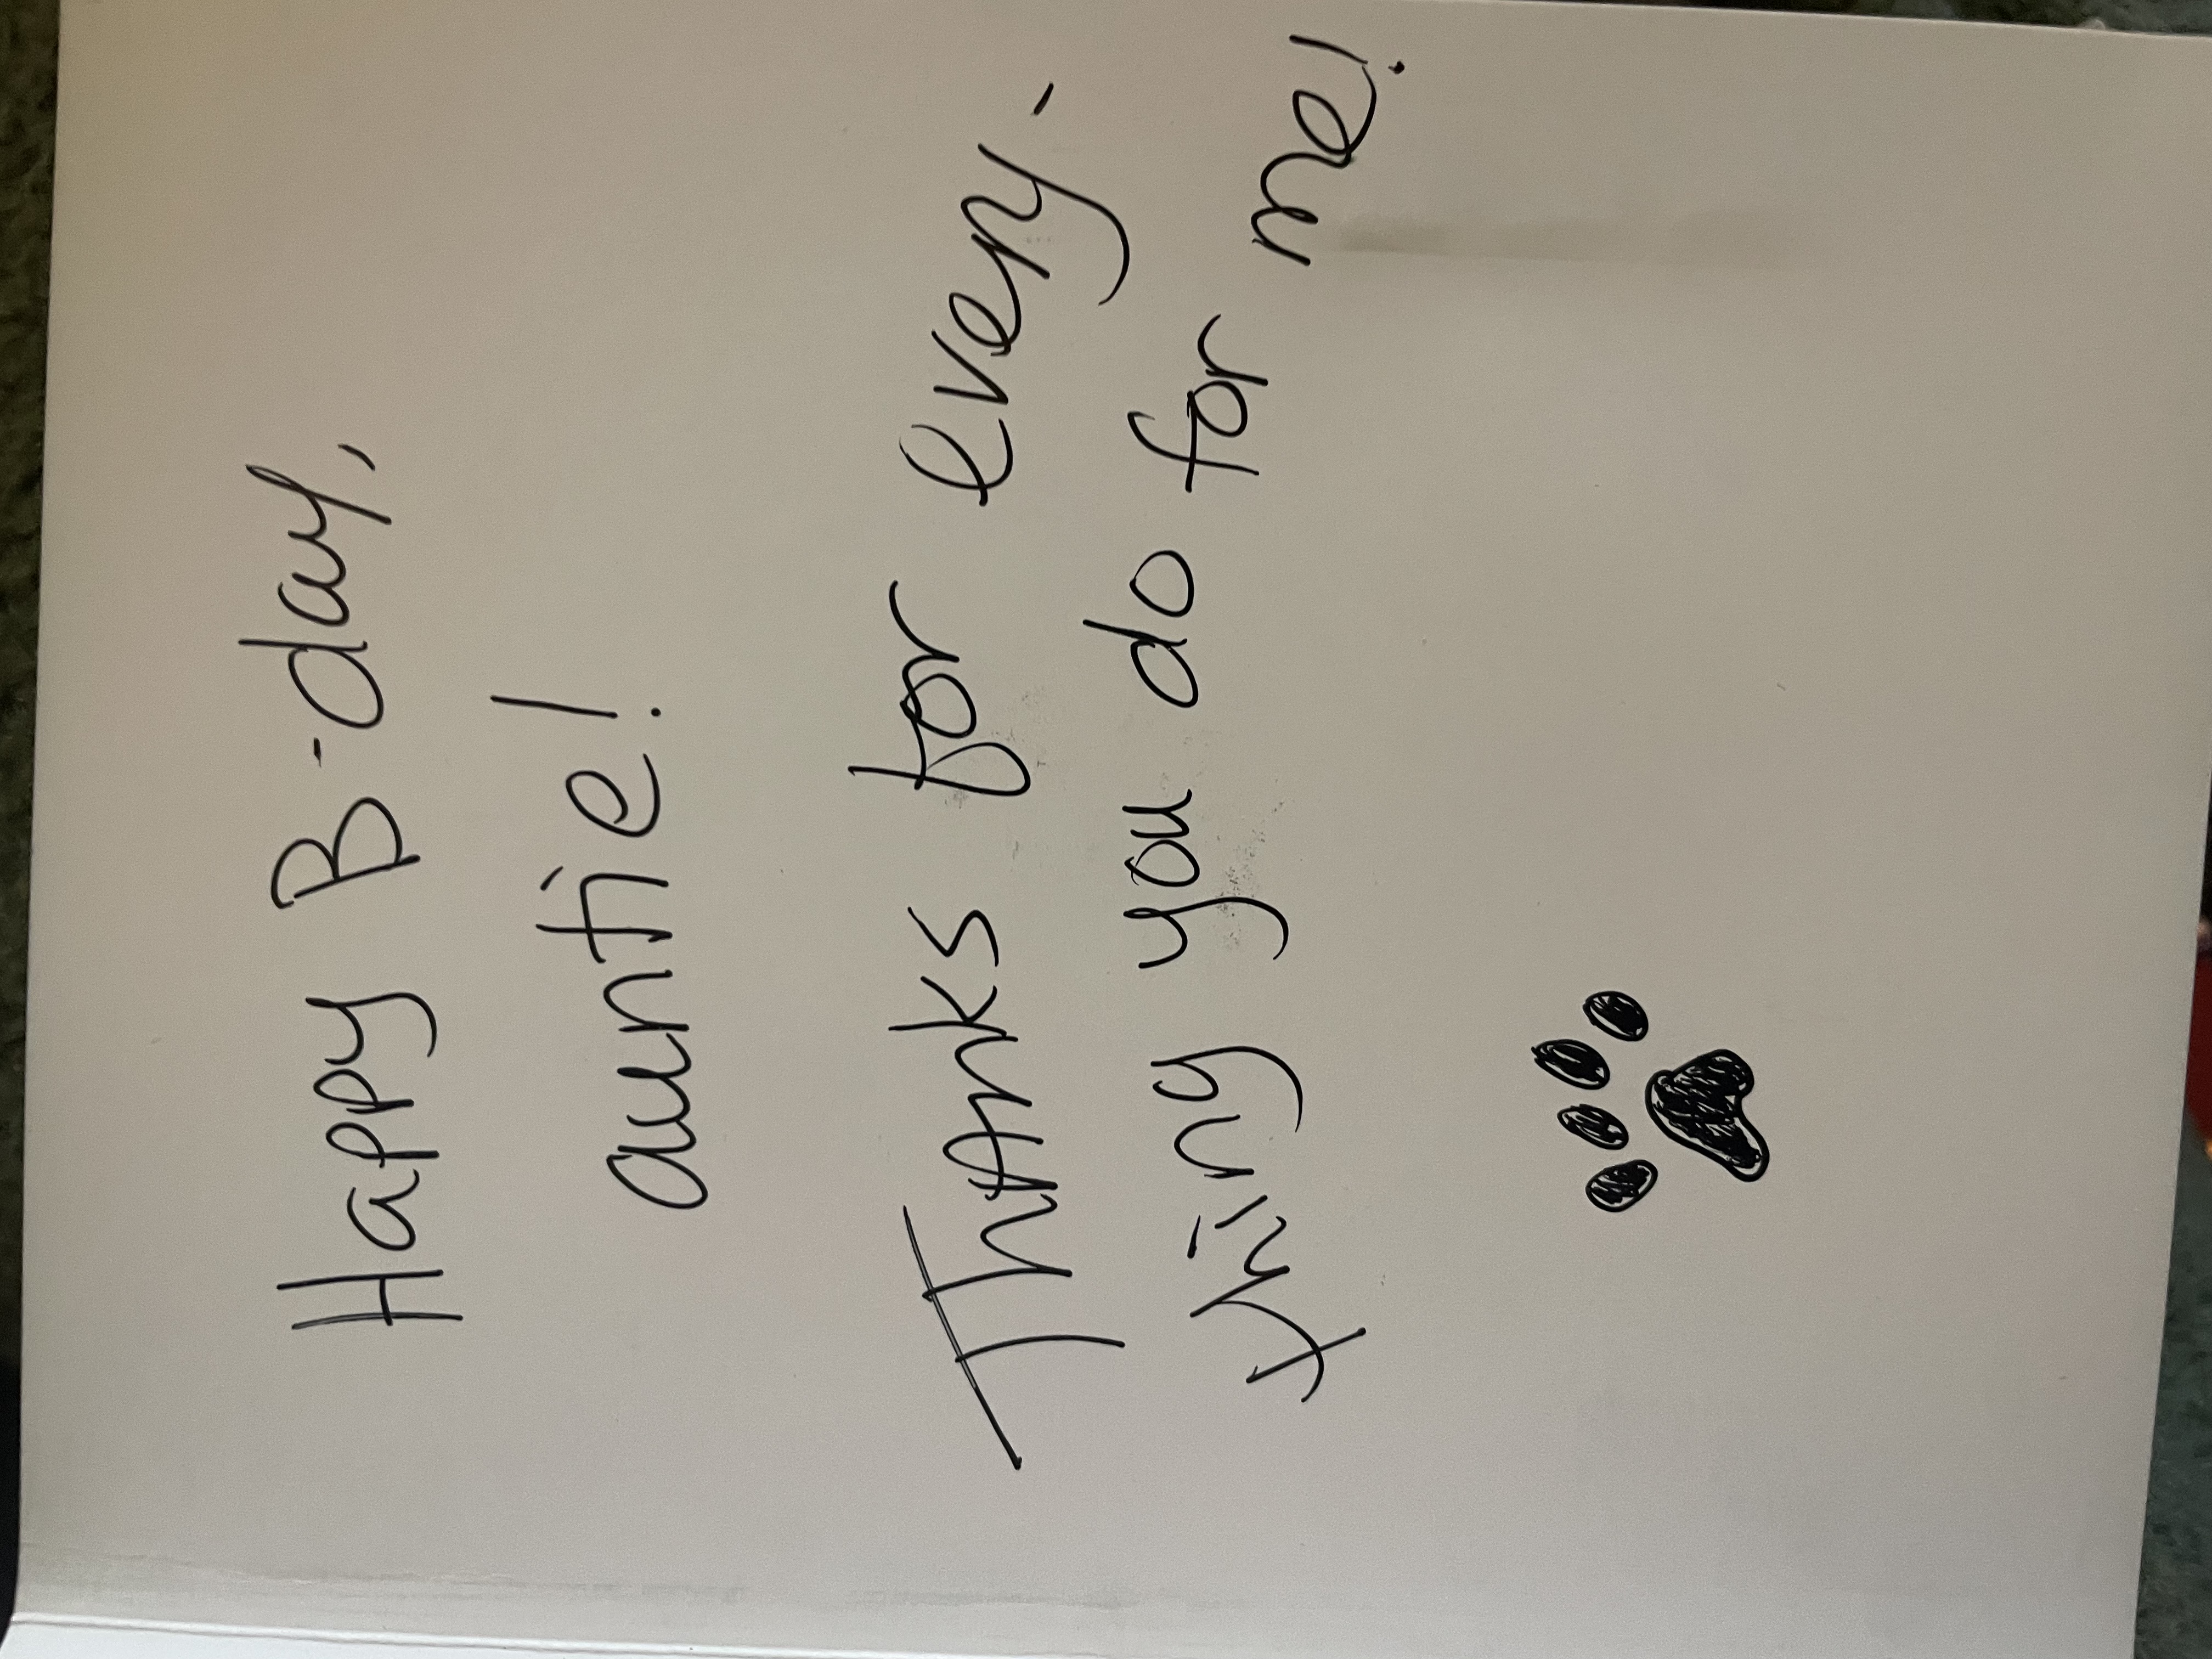 Happy B-day,
auntie!
Thanks for every-
thing you do for me!